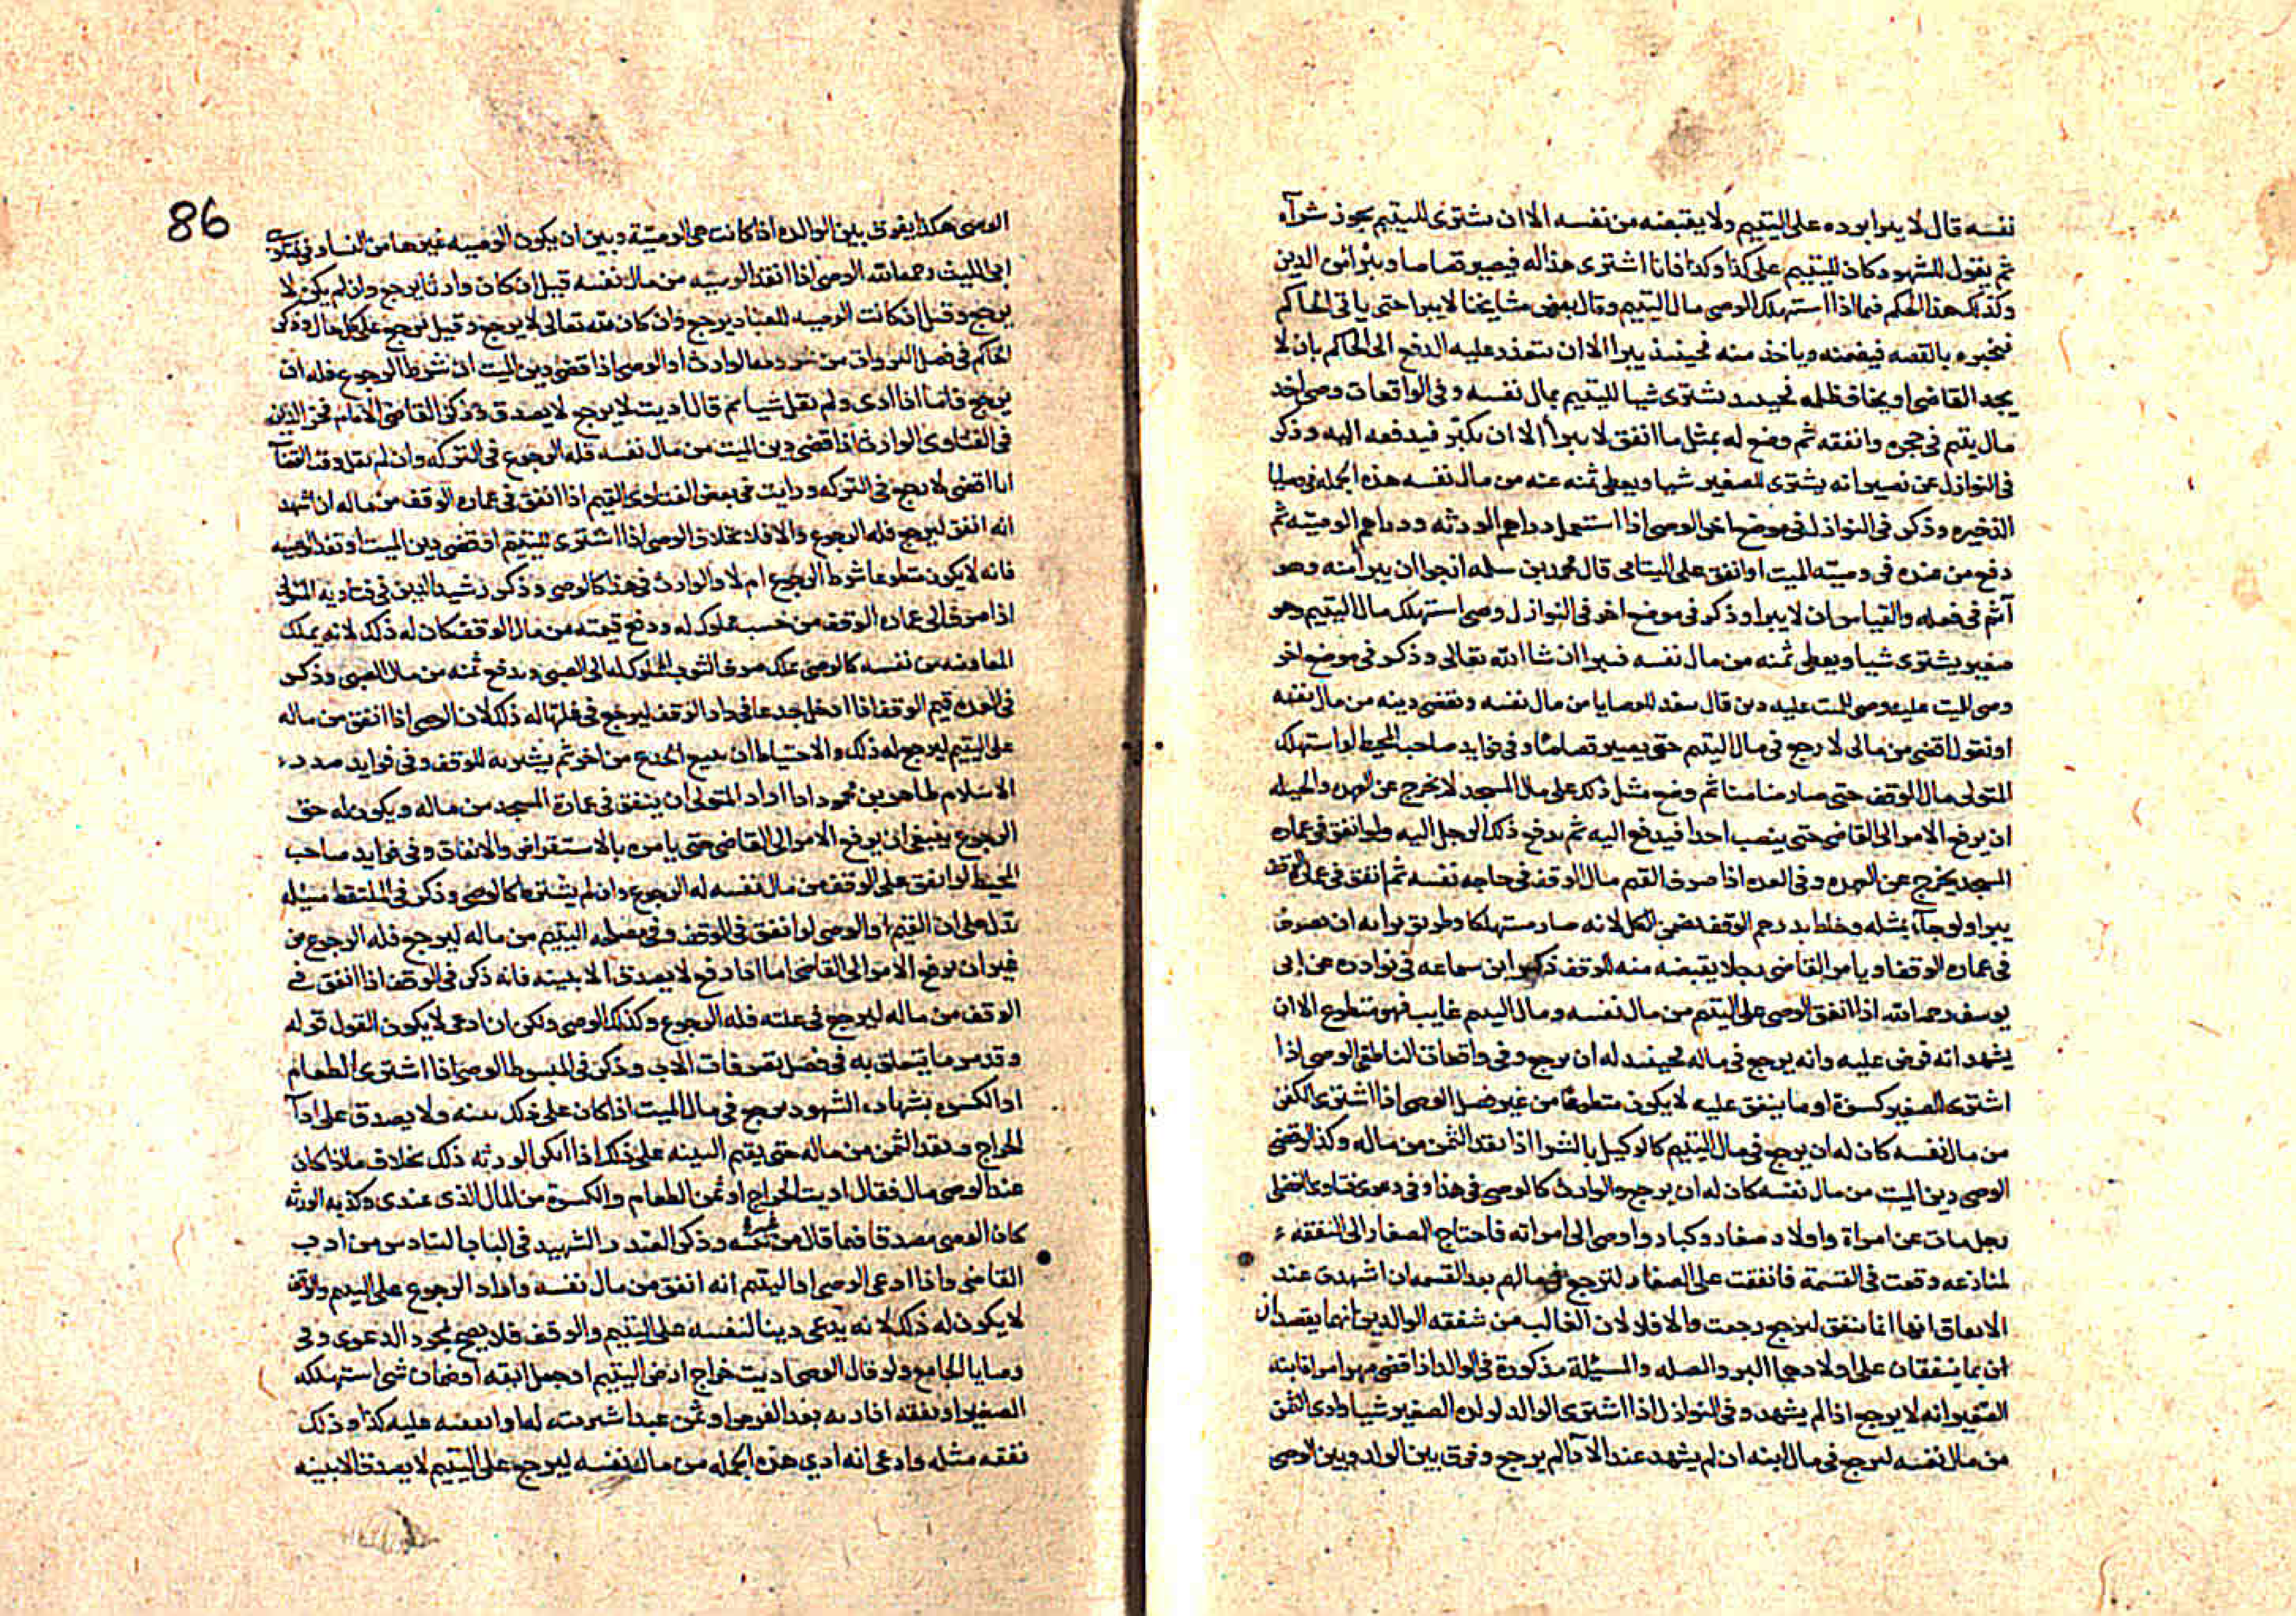 نفسه قال لا يبرا برده على اليتيم ولا يقبضه من نفسه الا ان يشترى لليتيم يجوز شرآه
ثم يقول للشهود كان لليتيم على كذا وكذا فانا اشترى هذا له فيصير قصاصا ويبرا من الدين
وكذلك هذا الحكم فيما اذا استهلك الوصى مال اليتيم وقال بعض مشايخنا لا يبرا حتى ياتى الحاكم
فيخبره بالقصه فيضمنه وياخذ منه فحينئذ يبرا الا ان يتعذر عليه الدفع الى الحاكم بان لا
يجد القاضى او يخاف ظلمه فحينئذ يشترى شيا لليتيم بمال نفسه وفى الواقعات وصى اخذ
مال يتيم فى حجره وانفقه ثم وضع له بمثل ما انفق لا يبرأ الا ان يكبر فيدفعه اليه وذكر
فى النوازل عن نصير انه يشترى للصغير شيا ويعطى ثمنه عنه من مال نفسه هذه الجمله فى وصايا
الذخيره وذكر فى النوازل فى موضع اخر الوصى اذا استعمل دراهم الورثه ودراهم الوصيه ثم
دفع من عنده فى وصيته الميت او انفق على اليتامى قال محمد بن سلمه ارجوا ان يبرأ منه وهو
آثم فى فعله والقياس ان لا يبرا وذكر فى موضع اخر فى النوازل وصى استهلك مال اليتيم وهو
صغير يشترى شيا ويعطى ثمنه من مال نفسه فيبرا ان شا الله تعالى وذكر فى موضع اخر
وصى الميت عليه دين قال ينفد الوصايا من مال نفسه ويقضى دينه من مال نفسه
او يقول اقضى من مالى لا رجع فى مال اليتيم حتى يصير قصاصا وفى فوايد صاحب المحيط لو استهلك
المتولى مال الوقف حتى صار ضامنا ثم وضع مثل ذلك على مال المسجد لا يخرج عن العهده والحيله
ان يرفع الامر الى القاضى حتى ينصب احدا فيدفع اليه ثم يدفع ذلك الرجل اليه ولو انفق فى عماره
المسجد يخرج عن العهده وفى العده اذا صرف القيم مال الوقف فى حاجه نفسه ثم انفق فى عمارة الوقف
يبرا ولو جآء بمثله وخلط بدرهم الوقف يضمن الكل لانه صار مستهلكا وطريق برآنه ان يصرف
فى عماره الوقف او يامر القاضى رجلا يقبضه منه للوقف ذكر ابن سماعه فى نوادره عن ابى
يوسف رحمه الله اذا انفق الوصى على اليتيم من مال نفسه ومال اليتيم غايب فهو متطوع الا ان
يشهد انه قرض عليه وانه يرجع فى ماله فحينئذ له ان يرجع وفى واقعات الناطفى الوصى اذا
اشترى للصغير كسوة او ما ينفق عليه لا يكون متطوعا من غير فصل الوصى اذا اشترى الكفن
من مال نفسه كان له ان يرجع فى مال اليتيم كالوكيل بالشرا اذا نقد الثمن من ماله وكذا لو قضى
الوصى دين الميت من مال نفسه كان له ان يرجع والوارث كالوصى فى هذا وفى دعوى فتاوى الفضلى
رجل مات عن امراة واولاد صغار وكبار واوصى الى امراته فاحتاج الصغار الى النفقه
لمنازعه وقعت فى القسمة فانفقت على الصغار لترجع فى مالهم بعد القسمه ان اشهدت عند
الانفاق انها انما تنفق لترجع رجعت والا فلا لان الغالب من شفقه الوالدين انهما يقصدان
ان بما ينفقان على اولادهما البر والصله والمسئلة مذكورة فى الوالد اذا قضى مهر امراة ابنه
الصغير انه لا يرجع اذا لم يشهد وفى النوازل اذا اشترى الوالد لولده الصغير شيا وادى الثمن
من مال نفسه ليرجع فى مال ابنه ان لم يشهد عند الادآ لم يرجع وفرق بين الوالد وبين الوصى
86
الوصى هكذا يفرق بين الوالده اذا كانت هى الوصيّة وبين ان يكون الوصيه غيرها من النسا وفى فتاوى
ابى الليث رحمه الله الوصى اذا انفد الوصيه من مال نفسه قيل ان كان وارثا يرجع وان لم يكن لا
يرجع وقيل ان كانت الوصيه للعباد يرجع وان كان لله تعالى لا يرجع وقيل يرجع على كل حال وذكر
الحاكم فى فصل الوارث او الوصى اذا قضى دين الميت ان شرط الرجوع فله ان
يرجع فاما اذا ادى ولم يقل شيا ثم قال اديت لا رجع لا يصدق وذكر القاضى الامام فخر الدين
فى الفتاوى الوارث اذا قضى دين الميت من مال نفسه فله الرجوع فى التركه وان لم يقل وقت القضآ
انا اقضى لا رجع فى التركه ورايت فى بعض الفتاوى القيم اذا انفق فى عماره الوقف من ماله ان اشهد
انه انفق ليرجع فله الرجوع والا فلا بخلاف الوصى اذا اشترى لليتيم او قضى دين الميت او نفد الوصيه
فانه لا يكون متطوعا شرط الرجوع ام لا والوارث فى هذا كالوصى وذكر رشيد الدين فى فتاويه المتولى
اذا صرف الى عماره الوقف من خشب مملوك له ودفع قيمته من مال الوقف كان له ذلك لانه يملك
المعاوضه من نفسه كالوصى يملك صرف الثوب المملوك له الى الصبى ويدفع ثمنه من مال الصبى وذكر
فى العده قيم الوقف اذا ادخل جذعا فى دار الوقف ليرجع فى غلتها له ذلك لان الوصى اذا انفق من ماله
على اليتيم ليرجع له ذلك والاحتياط ان يبيع الجذع من اخر ثم يشتريه للوقف وفى فوايد صدر
الاسلام طاهر بن محمود اذا اراد المتولى ان ينفق فى عمارة المسجد من ماله ويكون له حق
الرجوع ينبغى ان يرفع الامر الى القاضى حتى يامره بالاستقراض والانفاق وفى فوايد صاحب
المحيط لو انفق على الوقف من مال نفسه له الرجوع وان لم يشترط كالوصى وذكر فى الملتقط مسئله
تدل على ان القيم او الوصى لو انفق فى الوقف وفى مصلحه اليتيم من ماله ليرجع فله الرجوع من
غير ان يرفع الامر الى القاضى اما اذا رفع لا يصدق الا ببينه فانه ذكر فى الوقف اذا انفق فى
الوقف من ماله ليرجع فى غلته فله الرجوع وكذلك الوصى ولكن ان ادعى لا يكون القول قوله
وقد مر ما يتعلق به فى فصل تصرفات الاب وذكر فى المبسوط الوصى اذا اشترى الطعام
او الكسوه بشهاده الشهود يرجع فى مال الميت اذا كان على ذلك بينه ولا يصدق على ادآ
الخراج ونقد الثمن من ماله حتى يقيم البينه على ذلك اذا انكر الورثه ذلك بخلاف ما اذا كان
عند الوصى مال فقال اديت الخراج او ثمن الطعام والكسوة من المال الذى عندى وكذبه الورثه
كان الوصى مصدقا فيما قال من غيره وذكر الصدر الشهيد فى الباب السادس من ادب
القاضى واذا ادعى الوصى او اليتيم انه انفق من مال نفسه واراد الرجوع على اليتيم والوقف
لا يكون له ذلك لانه يدعى دينا لنفسه على اليتيم والوقف فلا يصح بمجرد الدعوى وفى
وصايا الجامع ولو قال الوصى اديت خراج ارض اليتيم او جعل ابقه او ضمان شى استهلكه
الصغير او نفقه بعد الفرض او ثمن عبد اشتريته له كذا وذلك
نفقه مثله وادعى انه ادى هذه الجمله من مال نفسه ليرجع على اليتيم لا يصدق الا ببينه